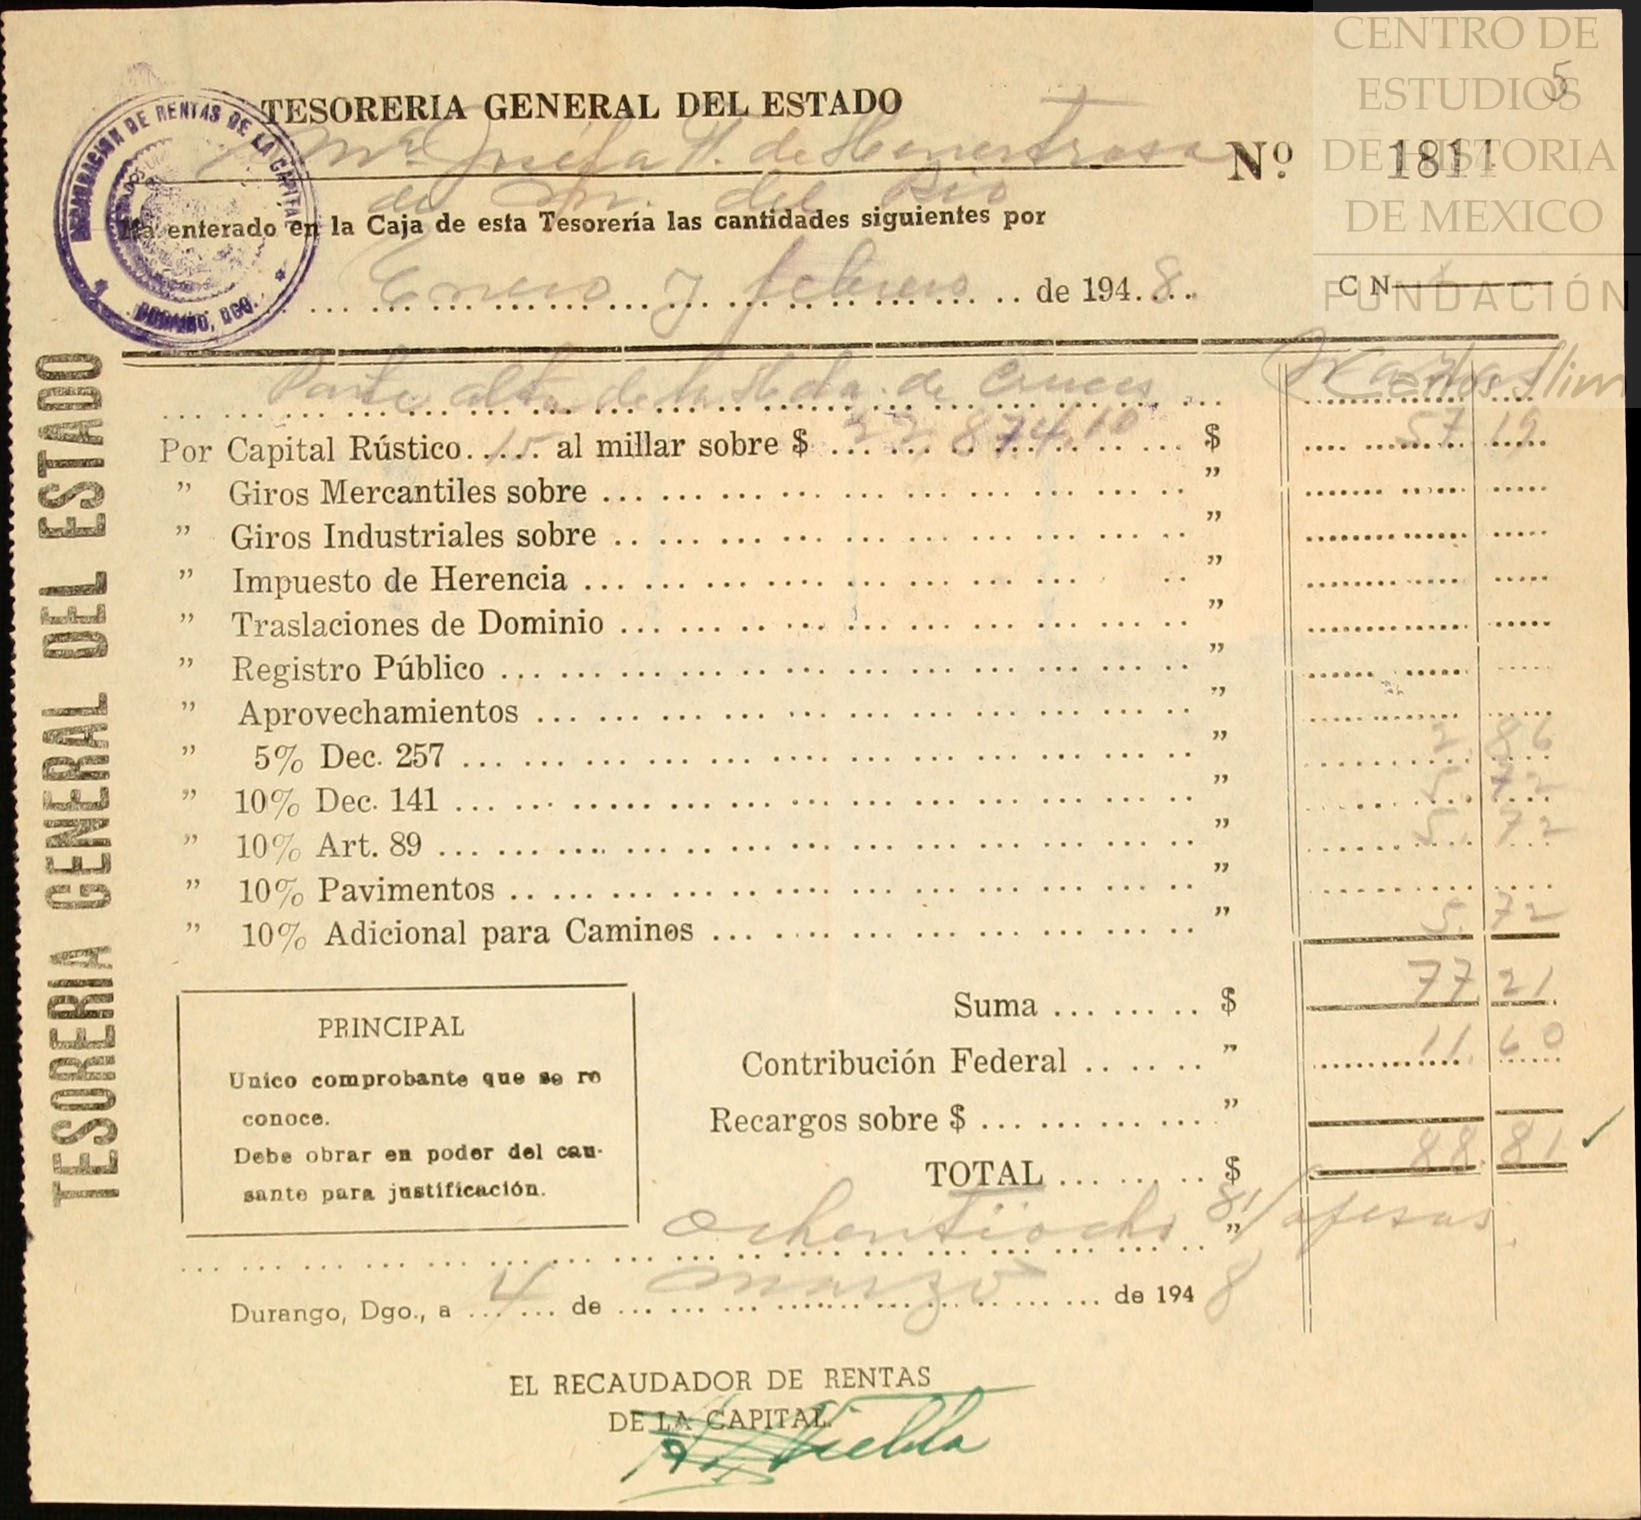 CENTRO DE
ESTUDIOS
DE HISTORIA
DE MEXICO
FUNDACIÓN
Carlos Slim
5
RECAUDACION DE RENTAS DE LA CAPITAL
DURANGO, DGO.
TESORERIA GENERAL DEL ESTADO
Ma. Josefa H. de Henestrosa
Nº 1811
de Sn. del Rio
Ha enterado en la Caja de esta Tesorería las cantidades siguientes por
Enero y febrero de 194 8
C N
TESORERIA GENERAL DEL ESTADO
Parte alta de la Hda. de Cruces
Por Capital Rústico 15 al millar sobre $ 22.874.10 $ 57 19
” Giros Mercantiles sobre ”
” Giros Industriales sobre ”
” Impuesto de Herencia ”
” Traslaciones de Dominio ”
” Registro Público ”
” Aprovechamientos ”
” 5% Dec. 257 ” 2. 86
” 10% Dec. 141 ” 5. 72
” 10% Art. 89 ” 5. 72
” 10% Pavimentos ”
” 10% Adicional para Caminos ” 5. 72
Suma $ 77 21
Contribución Federal ” 11. 60
Recargos sobre $ ”
TOTAL $ 88. 81
PRINCIPAL
Unico comprobante que se re
conoce.
Debe obrar en poder del cau-
sante para justificación.
Ochentiocho 81/ pesos
Durango, Dgo., a 4 de marzo de 194 8
EL RECAUDADOR DE RENTAS
DE LA CAPITAL.